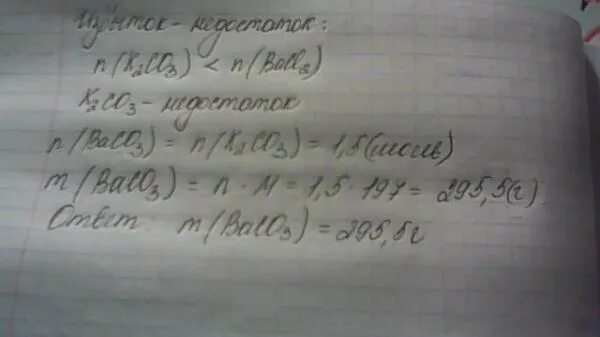 Избыток-недостаток:
n(K₂CO₃) < n(BaCl₂)
K₂CO₃-недостаток
n(BaCO₃) = n(K₂CO₃) = 1,5(моль)
m(BaCO₃) = n · M = 1,5 · 197 = 295,5(г)
Ответ: m(BaCO₃) = 295,5г